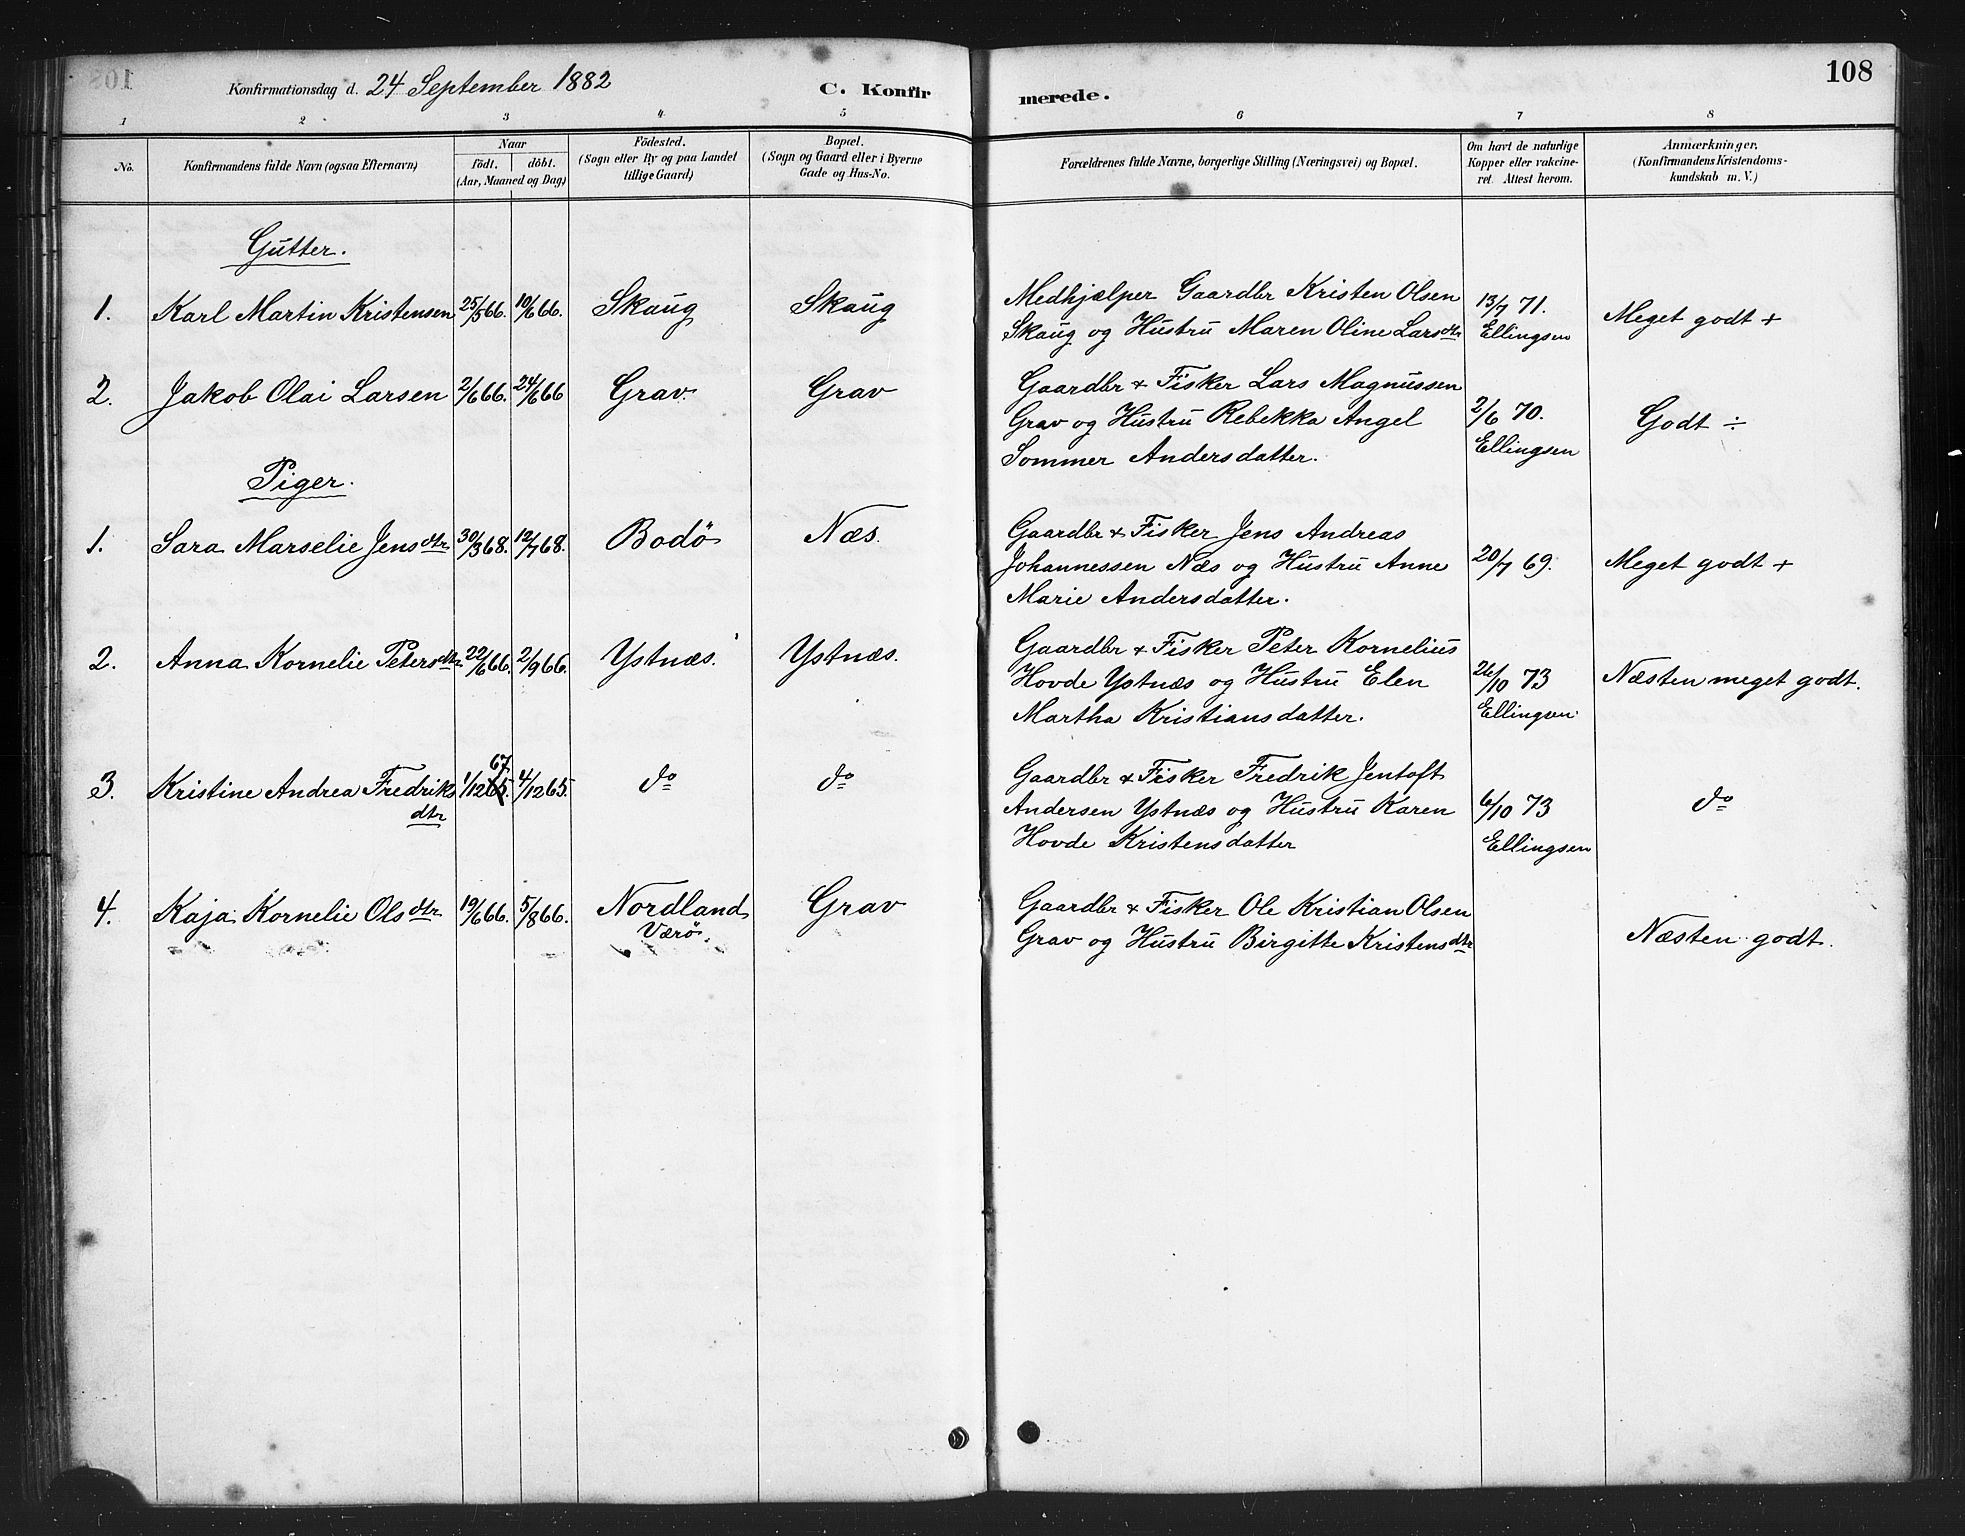 108
Konfirmationsdag d. 24 September 1882
C. Konfirmerede.
1 2 3 4 5 6 7 8
No.
Konfirmandens fulde Navn (ogsaa Efternavn)
Naar
födt. döbt.
(Aar, Maaned og Dag)
Födested.
(Sogn eller By og paa Landet
tillige Gaard)
Bopæl.
(Sogn og Gaard eller i Byerne
Gade og Hus-No.
Forældrenes fulde Navne, borgerlige Stilling (Næringsvei) og Bopæl.
Om havt de naturlige
Kopper eller vakcine-
ret. Attest herom.
Anmærkninger.
(Konfirmandens Kristendoms-
kundskab m. V.)
Gutter.
1. Karl Martin Kristensen 25/5 66. 10/6 66. Skaug Skaug
Medhjælper Gaardbr Kristen Olsen
Skaug og Hustru Maren Oline Larsdtr
13/7 71.
Ellingsen
Meget godt +
2. Jakob Olai Larsen 2/6 66. 24/6 66 Grav. Grav
Gaardbr + Fisker Lars Magnussen
Grav og Hustru Rebekka Angel
Sommer Andersdatter.
2/6 70.
Ellingsen
Godt ÷
Piger.
1. Sara Marselie Jensdtr 30/3 68. 12/7 68. Bodö Næs.
Gaardbr + Fisker Jens Andreas
Johannessen Næs og Hustru Anne
Marie Andersdatter.
20/7 69.
Meget godt +
2. Anna Kornelie Petersdtr 22/6 66. 2/9 66. Ystnæs. Ystnæs.
Gaardbr + Fisker Peter Kornelius
Hovde Ystnæs og Hustru Elen
Martha Kristiansdatter.
26/10 73
Ellingsen.
Næsten meget godt.
67
3. Kristine Andrea Fredriks 1/12 65. 4/12 65. do do
dtr
Gaardbr + Fisker Fredrik Jentoft
Andersen Ystnæs og Hustru Karen
Hovde Kristensdatter
6/10 73
Ellingsen
do
4. Kaja Kornelie Olsdtr 19/6 66. 5/8 66. Nordland Grav
Værö.
Gaardbr + Fisker Ole Kristian Olsen
Grav og Hustru Birgitte Kristensdtr
Næsten godt.